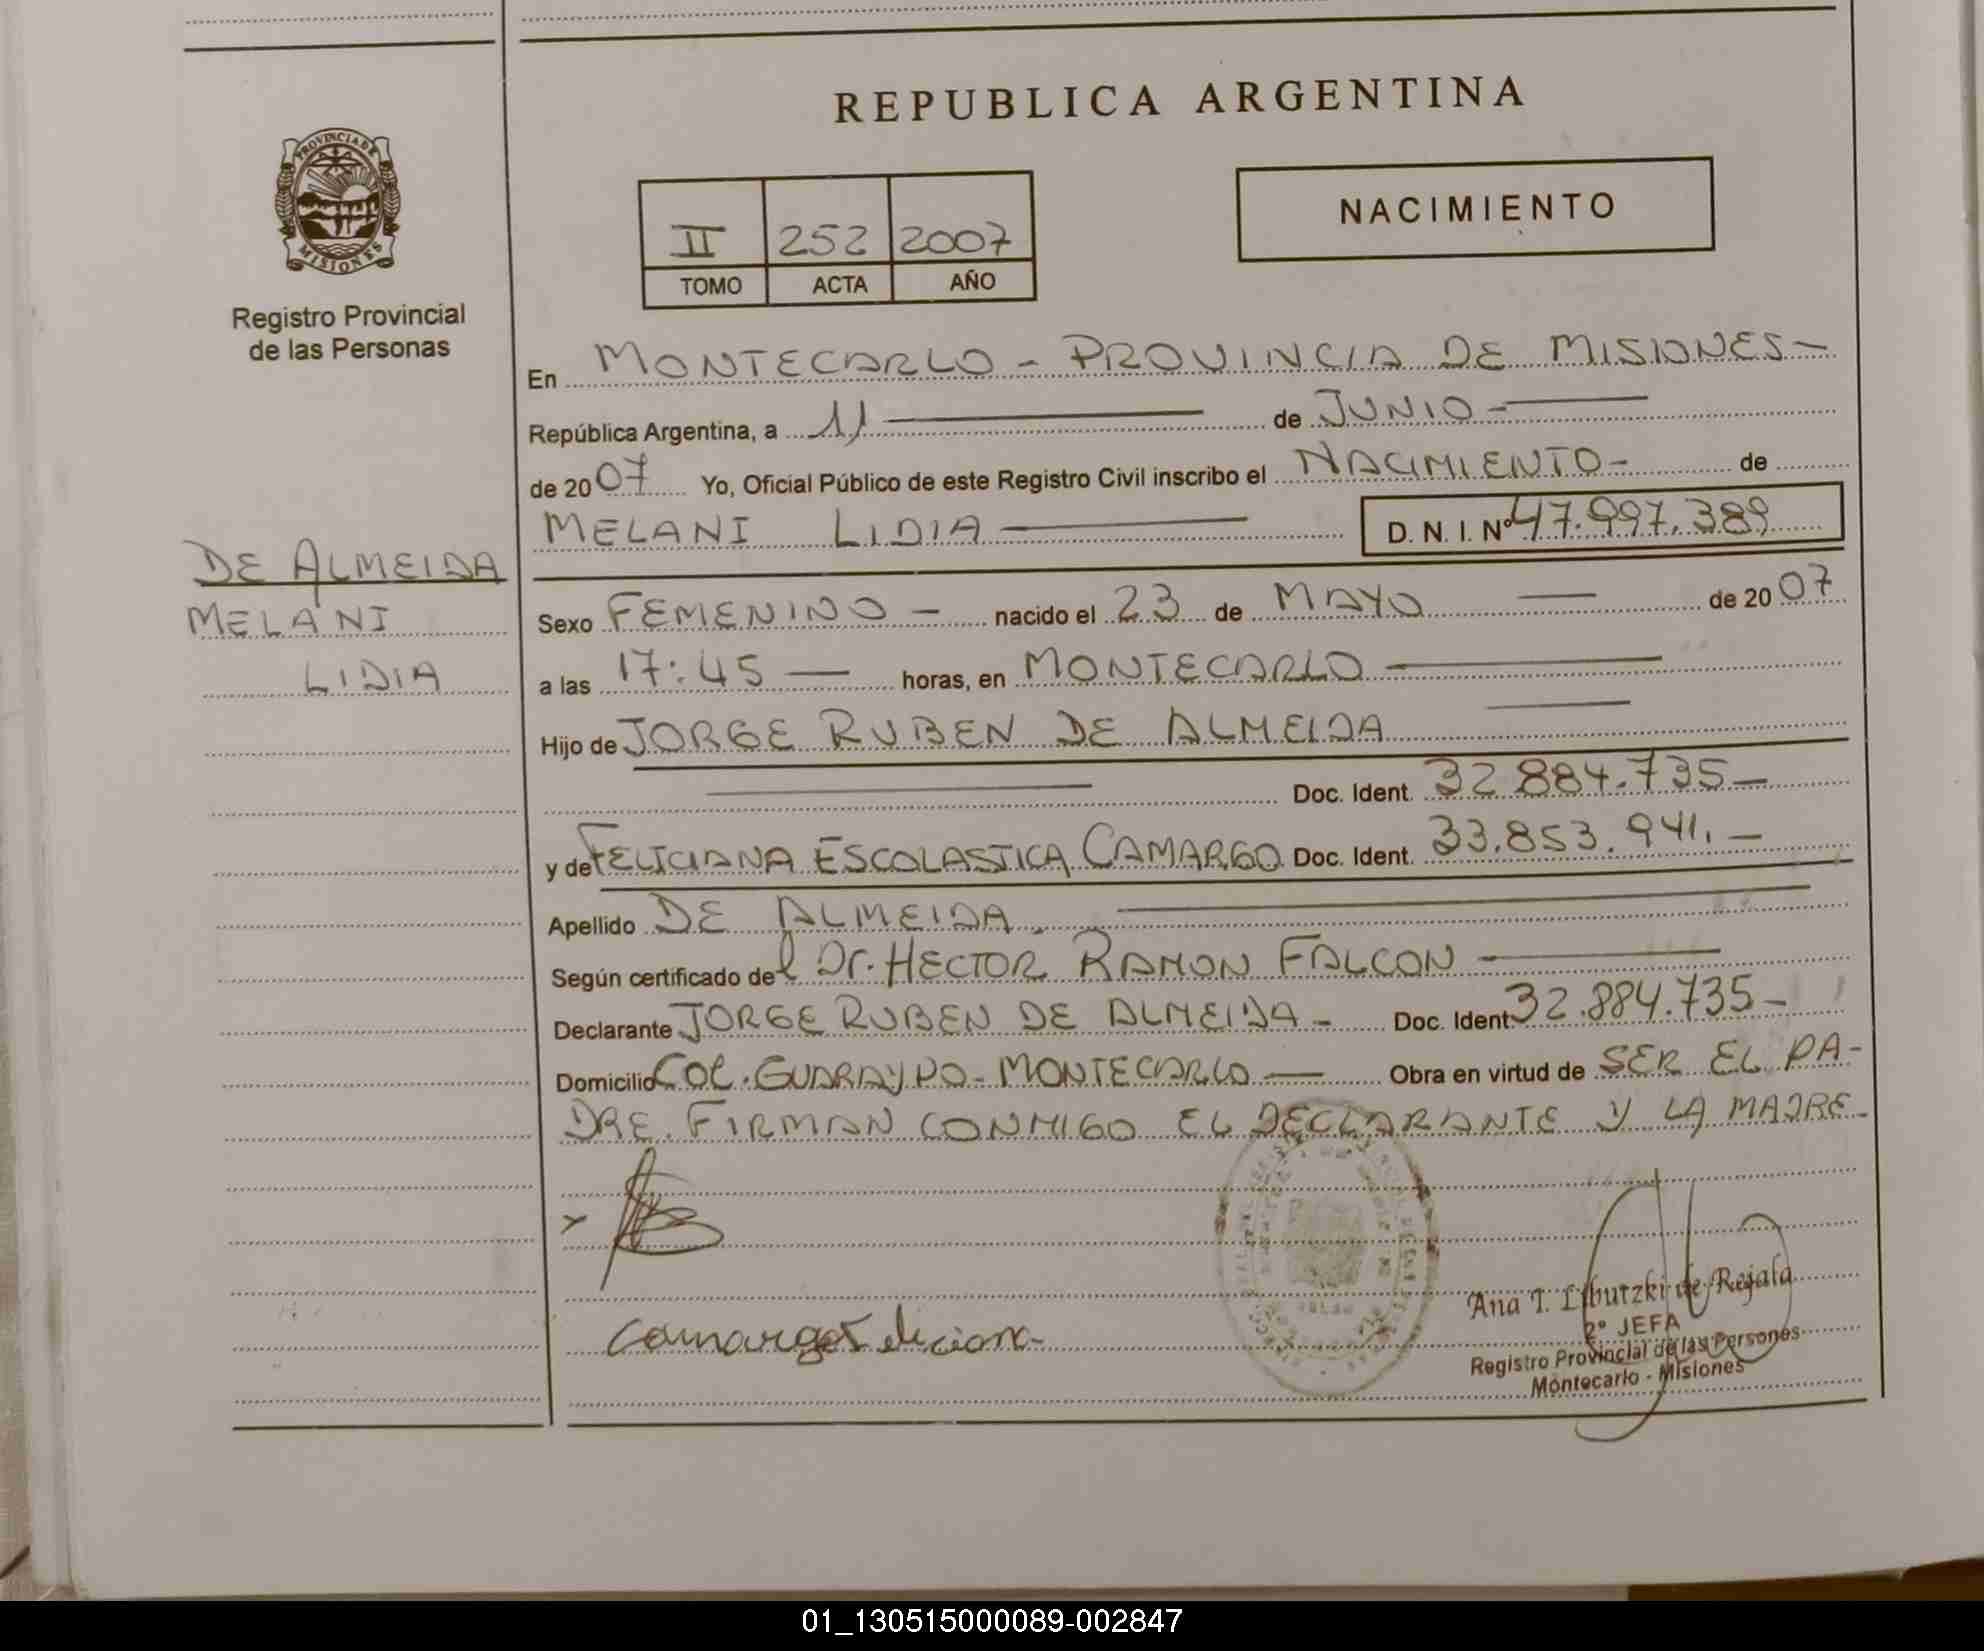 REPUBLICA ARGENTINA
PROVINCIA DE
MISIONES
Registro Provincial
de las Personas
II 252 2007
TOMO ACTA AÑO
NACIMIENTO
En MONTECARLO - PROVINCIA DE MISIONES -
República Argentina, a 11 de JUNIO -
de 2007 Yo, Oficial Público de este Registro Civil inscribo el NACIMIENTO - de
MELANI LIDIA D.N.I. Nº 47.997.389
DE ALMEIDA
MELANI
LIDIA
Sexo FEMENINO - nacido el 23 de MAYO - de 2007
a las 17:45 - horas, en MONTECARLO
Hijo de JORGE RUBEN DE ALMEIDA
Doc. Ident. 32.884.735 -
y de FELICIANA ESCOLASTICA CAMARGO Doc. Ident. 33.853.941. -
Apellido DE ALMEIDA.
Según certificado del Dr. HECTOR RAMON FALCON
Declarante JORGE RUBEN DE ALMEIDA - Doc. Ident 32.884.735 -
Domicilio COL. GUARAYPO - MONTECARLO - Obra en virtud de SER EL PA-
DRE. FIRMAN CONMIGO EL DECLARANTE Y LA MADRE -
Camargo Feliciana
Ana I. Liburzki de Rejala
2º JEFA
Registro Provincial de las Persones
Montecarlo - Misiones
01_130515000089-002847